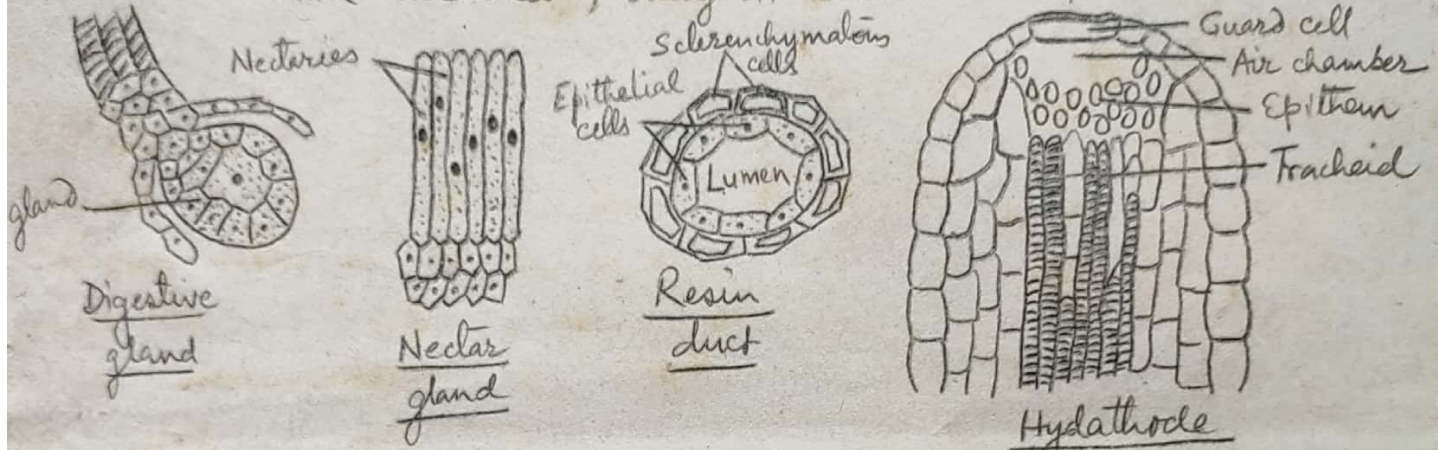 gland
Digestive
gland
Nectaries
Nectar
gland
Sclerenchymatous
cells
Epithelial
cells
Lumen
Resin
duct
Guard cell
Air chamber
Epithem
Tracheid
Hydathode